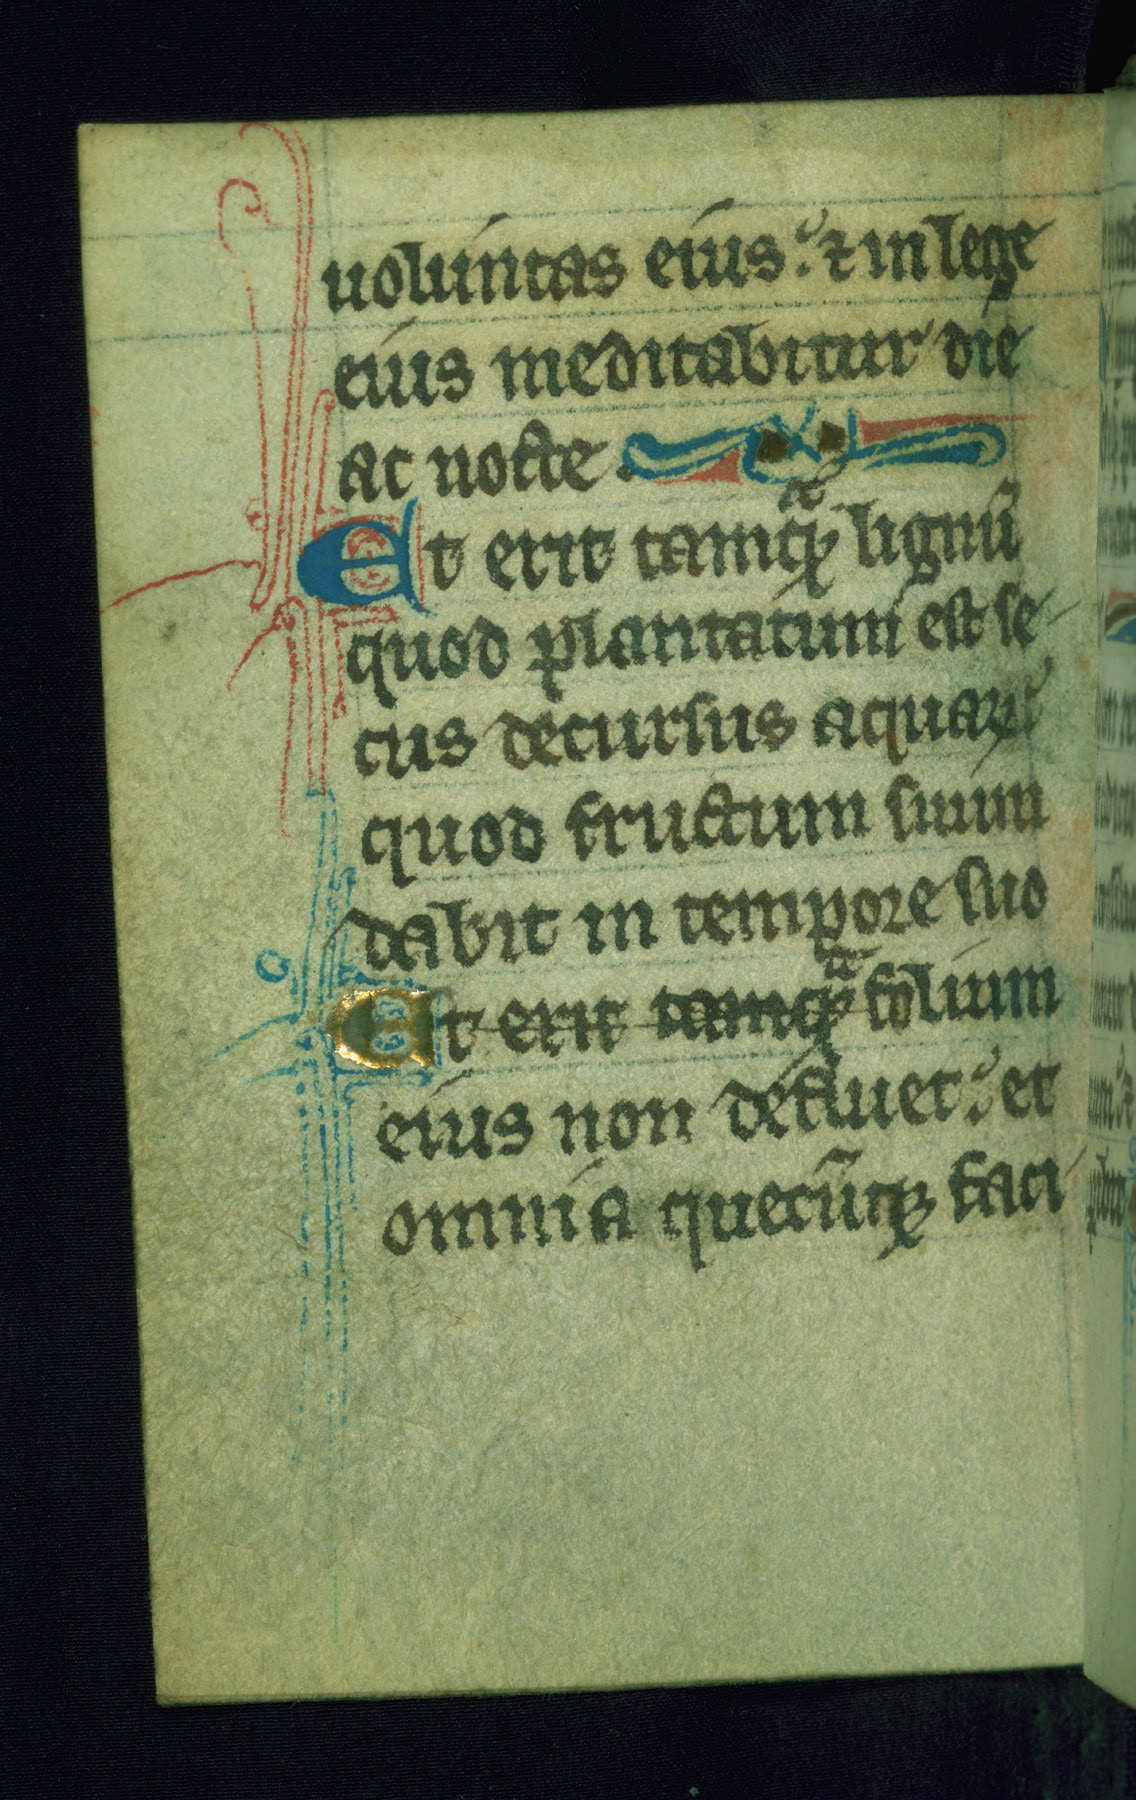 uoluntas eius: ⁊ in lege
eius meditabitur die
ac nocte.
Et erit tamqᵃ lignū
quod plantatum est se
cus decursus aquaꝝ
quod fructum suum
dabit in tempore suo
Et erit tamqᵃ folium
eius non defluet: et
omnia quecūqꝫ faci